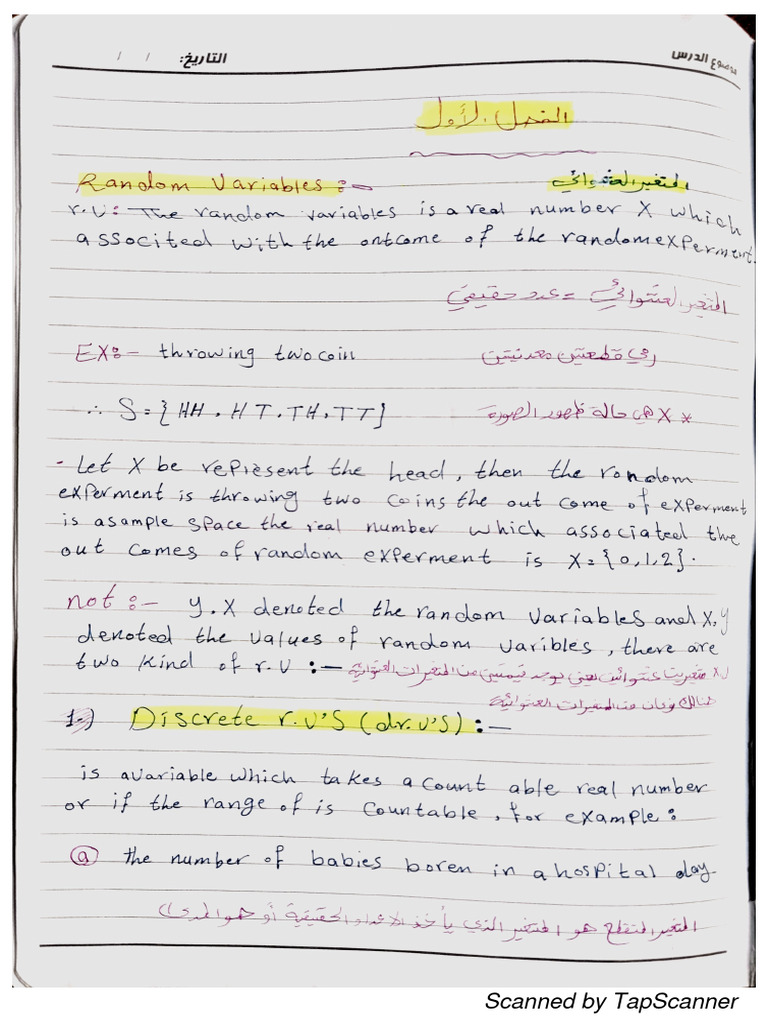 موضوع الدرس
التاريخ: / /
الفصل الأول
Random Variables:-
المتغير العشوائي
r.v: The random variables is a real number X which
associted with the ontcome of the random experment.
المتغير العشوائي = عدد حقيقي
EX:- throwing two coin
رمي قطعتين معدنيتين
∴ S={HH, HT, TH, TT}
* X هي حالة ظهور الصورة
- Let X be represent the head, then the random
experment is throwing two coins the out come of experment
is asample space the real number which associated the
out comes of random experment is X={0,1,2}.
not:- y.X denoted the random variables and X,y
denoted the values of random varibles, there are
two kind of r.v :-
هنالك نوعان من المتغيرات العشوائية
1-) Discrete r.v's (d.r.v's):-
is avariable which takes a count able real number
or if the range of is countable, for example:
(a) the number of babies boren in a hospital day.
المتغير المتقطع هو المتغير الذي يأخذ الاعداد الحقيقية أو هو المدى)
Scanned by TapScanner